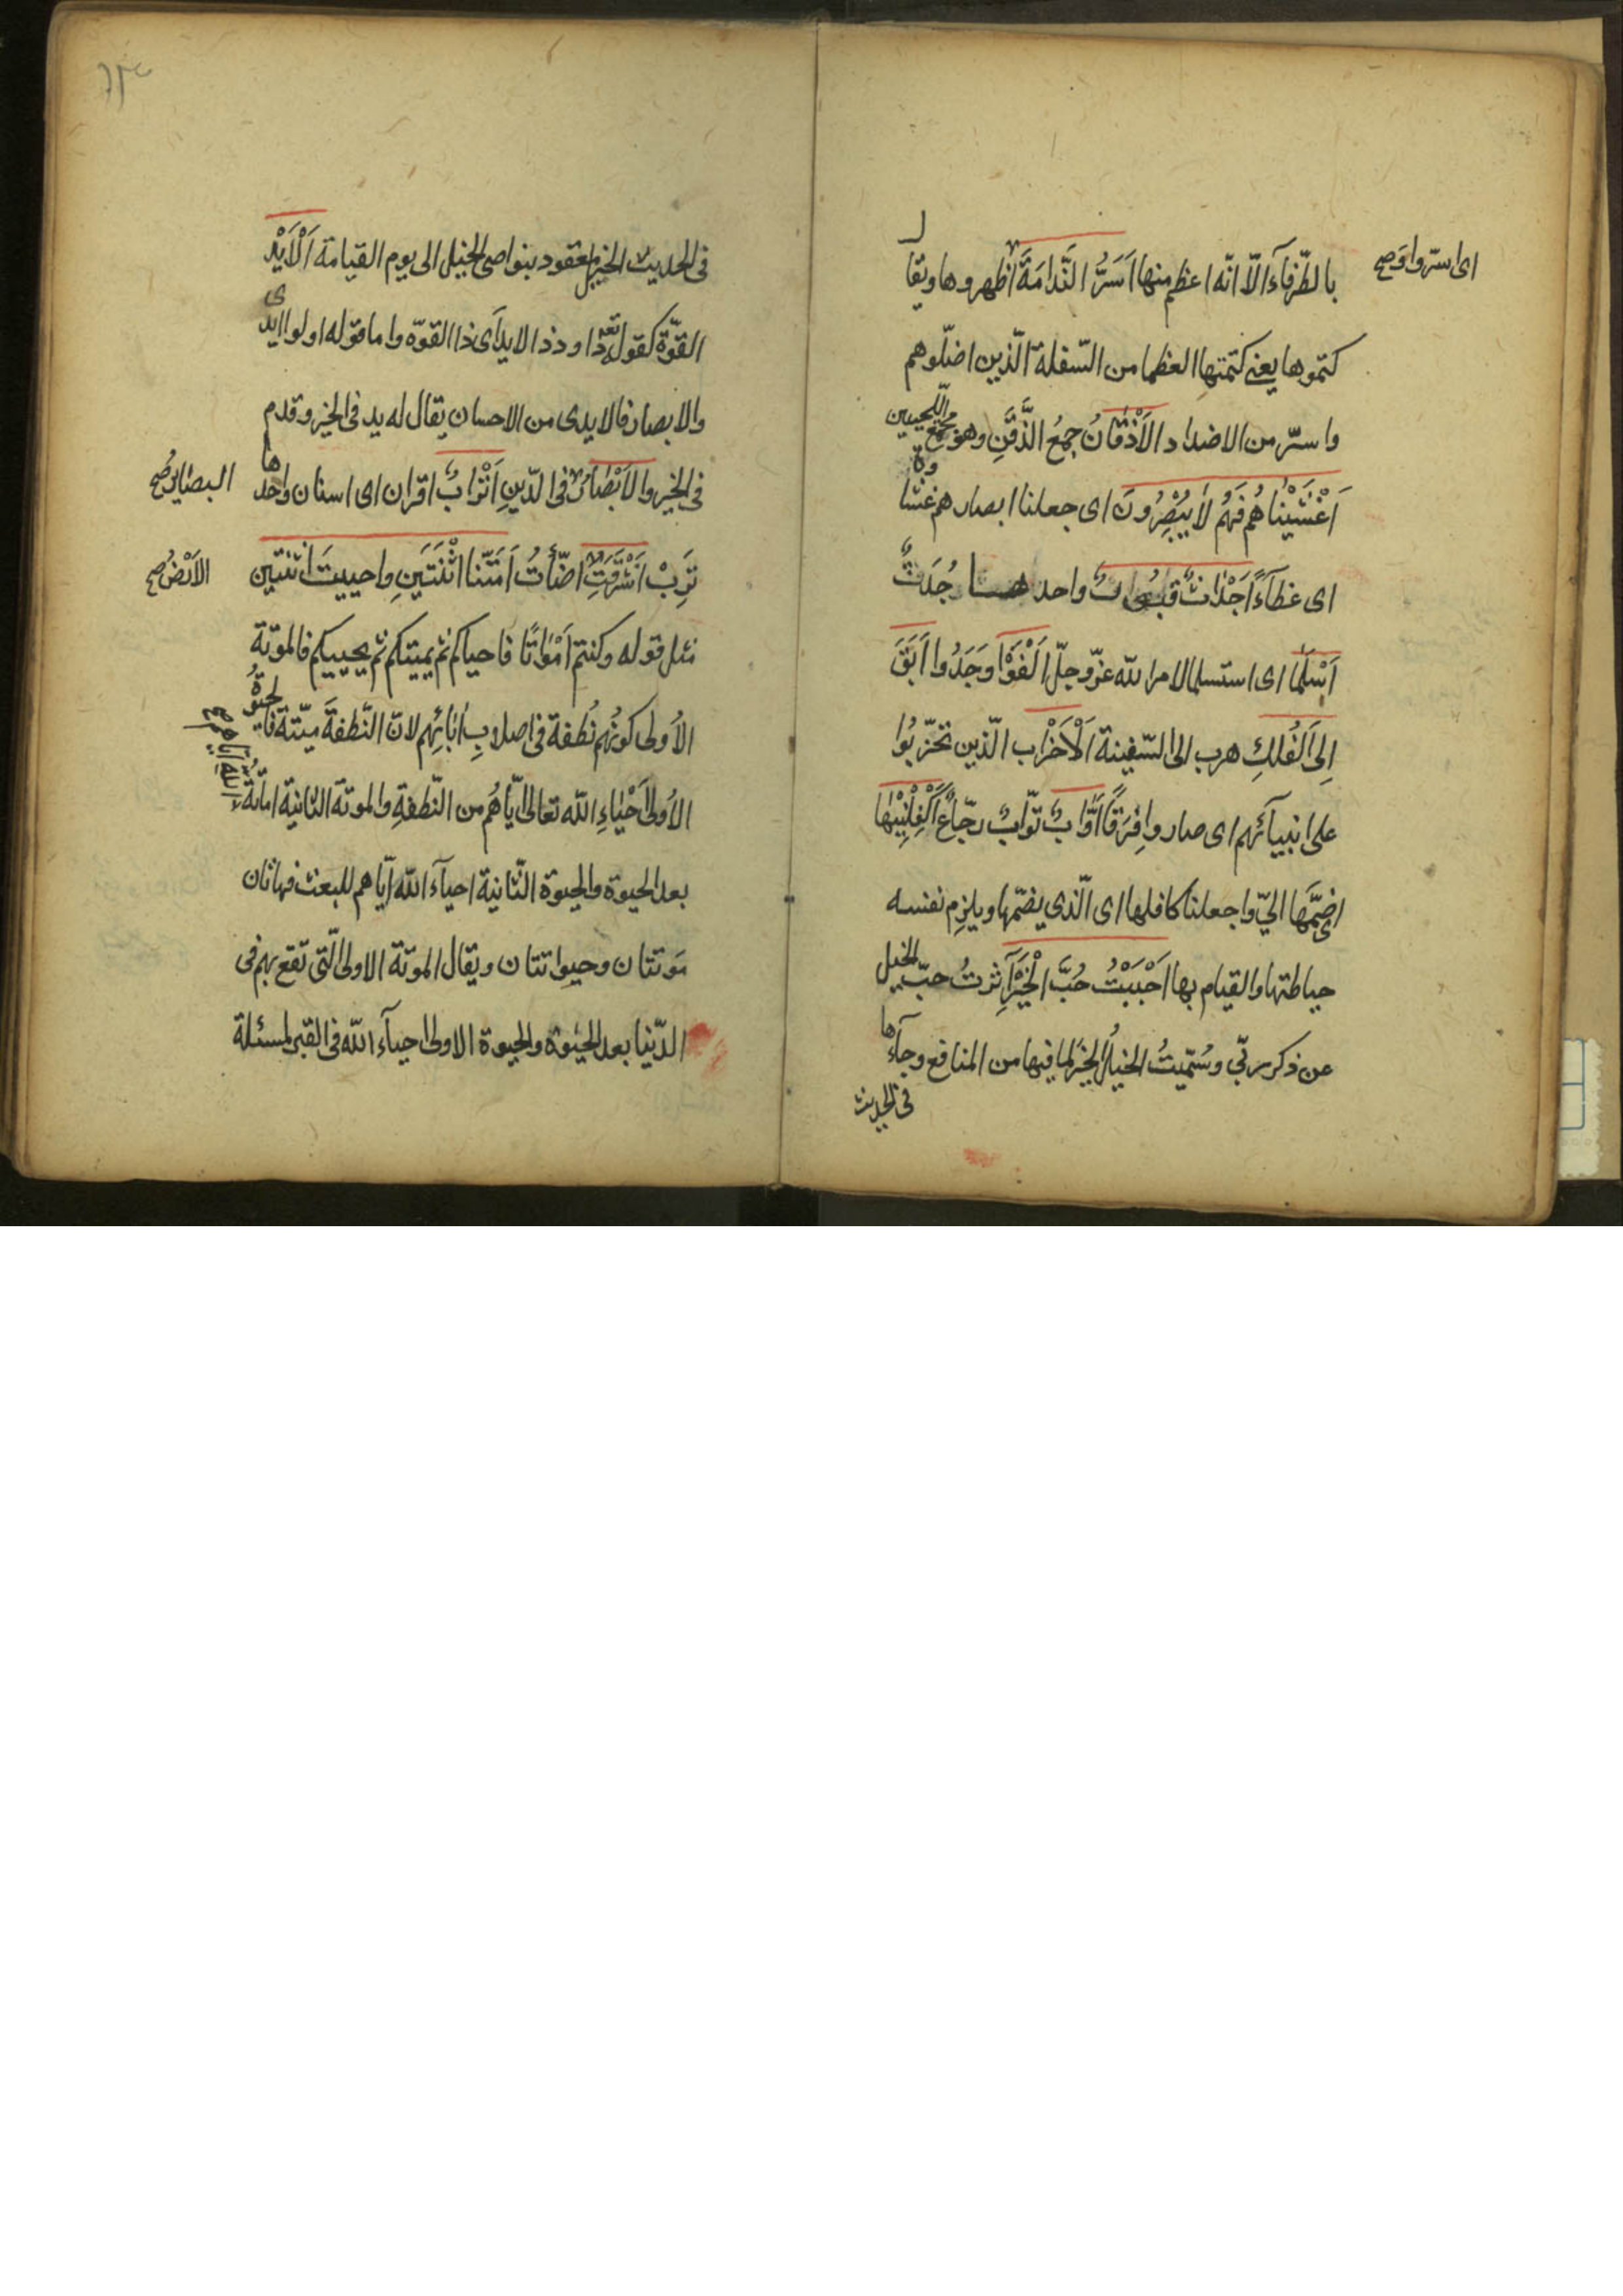 بالطّرفآء الّا انّه اعظم منها اَسَرُّ النَّدامَةَ اظهروها ويقال
اى اسرّوا وَ صح
كتموها يعنى كتمتها العظما من السّفلة الّذين اضلّوهم
واسرّ من الاضداد الاَذْقَانُ جمعُ الذَّقَنِ وهو مجمع اللّحيين
اَغْشَيْنَاهُم فَهُم لَا يُبْصِرُونَ اى جعلنا ابصارهم غشاوة
اى غطآءً اَجْدَاثٌ قبُورٌ واحدها جُدَثٌ
اَسْلَمَا اى استسلما لامر الله عزّوجلّ اَلْفَوْا وَجَدُوا اَبَقَ
اِلَى الفُلكِ هرب الى السّفينة اَلْاَحْزَاب الّذين تحزّبُوا
على انبيآئهم اى صاروا فِرَقًا اَوَّابٌ توّابٌ رجّاعٌ اَكْفِلْنِيْهَا
اى ضمَّها اليّ واجعلنى كافلها اى الّذى يضمّها ويلزم نفسه
حياطتها والقيام بها اَحْبَبْتُ حُبَّ الْخَيْرِ آثرتُ حبّ الخيل
عن ذكر ربّي وسُمّيتُ الخيلُ الخيرَ لما فيها من المنافع وجآءها
فى الحديث
فى الحديث الخيل معقود بنواصى الخيل الى يوم القيامة اَلْاَيْدِ
القوّة كقوله تعه داود ذا الايد اَى ذا القوّة واما قوله اولوا الايدى
والابصار فالايدى من الاحسان يقال له يد فى الخير وقدم
فى الخير والاَبْصَارُ فى الدّينِ اَتْرَابٌ اقران اى اسنان واحدها
البصاير صح
تَرِبْ اَشْرَقَتِ اضّاءتُ اَمَتّنَا اثْنَتَيَنِ واحييتَ اثنتين
الاَرْضُ صح
مثل قوله وكنتم اَمْوَاتًا فاحياكم ثم يميتكم ثم يحييكم فالموتة
الاُولى كونُهم نُطفة فى اصلابِ اٰبآئِهم لانّ النّطفةَ ميّتة فالحيوةُ
الاُولى اَحْيَاءِ الله تعالى ايّاهُم من النّطفةِ والموتة الثانية اماتةُ
اللهِ ايّاهم صح
بعد الحيوة والحيوة الثّانية احيآء الله ايّاهم للبعث فهاتان
مَوتتان وحيواتتان ويقال الموتة الاولى الّتى تقع بهم فى
الدّنيا بعد الحيٰوة والحيوة الاولى احيآء الله فى القبر لمسئلة